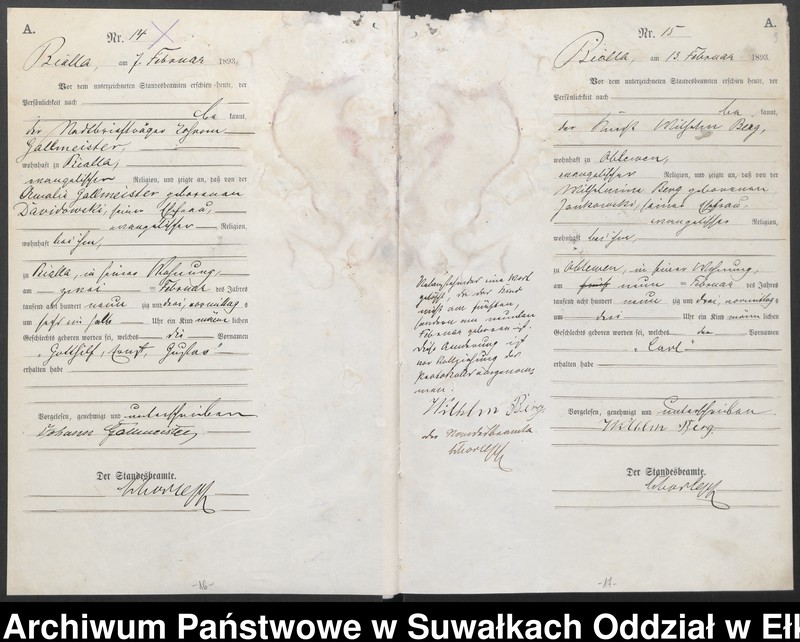 A.
Nr. 14
Bialla, am 7. Februar 1893.
Vor dem unterzeichneten Standesbeamten erschien heute, der
Persönlichkeit nach
be kannt,
der Stadtbriefträger Johann
Gallmeister,
wohnhaft zu Bialla,
evangelischer Religion, und zeigte an, daß von der
Amalie Gallmeister geborenen
Davidowski, seiner Ehefrau,
evangelischer Religion,
wohnhaft bei ihm,
zu Bialla, in seiner Wohnung,
am zwei ten Februar des Jahres
tausend acht hundert neun zig und drei, vormittags
um acht ein halb Uhr ein Kind männ lichen
Geschlechts geboren worden sei, welches die Vornamen
"Gotthilf, Ernst, Gustav"
erhalten habe
Vorgelesen, genehmigt und unterschrieben
Johann Gallmeister
Der Standesbeamte.
-16-
Nebenstehender eine Wort
gelöscht, da das Kind
nicht am fünften,
sondern am neunten
Februar geboren ist.
Diese Aenderung ist
vor Vollziehung des
Protokolls vorgenom
men.
Wilhelm Berg.
der Standesbeamte
A.
Nr. 15
Bialla, am 13. Februar 1893.
Vor dem unterzeichneten Standesbeamten erschien heute, der
Persönlichkeit nach
be kannt,
der Wilhelm Berg,
wohnhaft zu Oblewen,
evangelischer Religion, und zeigte an, daß von der
Wilhelmine Berg geborenen
Jankowski, seiner Ehefrau,
evangelischer Religion,
wohnhaft bei ihm,
zu Oblewen, in seiner Wohnung,
am fünf neun ten Februar des Jahres
tausend acht hundert neun zig und drei, vormittags
um drei Uhr ein Kind männ lichen
Geschlechts geboren worden sei, welches den Vornamen
"Carl"
erhalten habe
Vorgelesen, genehmigt und unterschrieben
Wilhelm Berg
Der Standesbeamte.
-17-
Archiwum Państwowe w Suwałkach Oddział w Eł